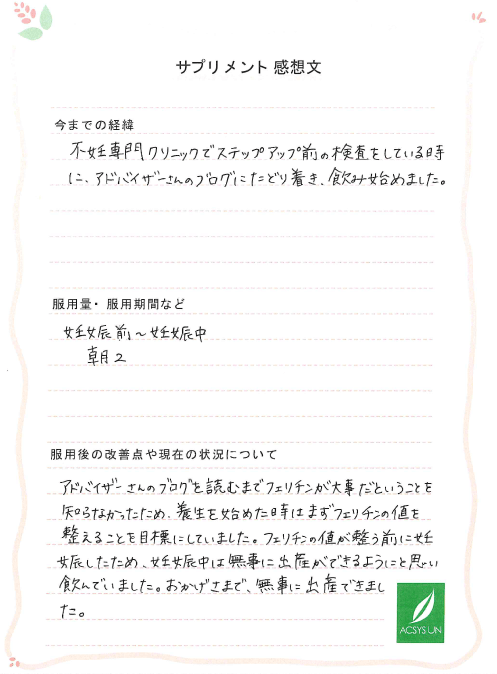 サプリメント 感想文
今までの経緯
不妊専門クリニックでステップアップ前の検査をしている時
に、アドバイザーさんのブログにたどり着き、飲み始めました。
服用量・服用期間など
妊娠前〜妊娠中
朝2
服用後の改善点や現在の状況について
アドバイザーさんのブログを読むまでフェリチンが大事だということを
知らなかったため、養生を始めた時はまずフェリチンの値を
整えることを目標にしていました。フェリチンの値が整う前に妊
娠したため、妊娠中は無事に出産ができるようにと思い
飲んでいました。おかげさまで、無事に出産できまし
た。
ACSYS UN